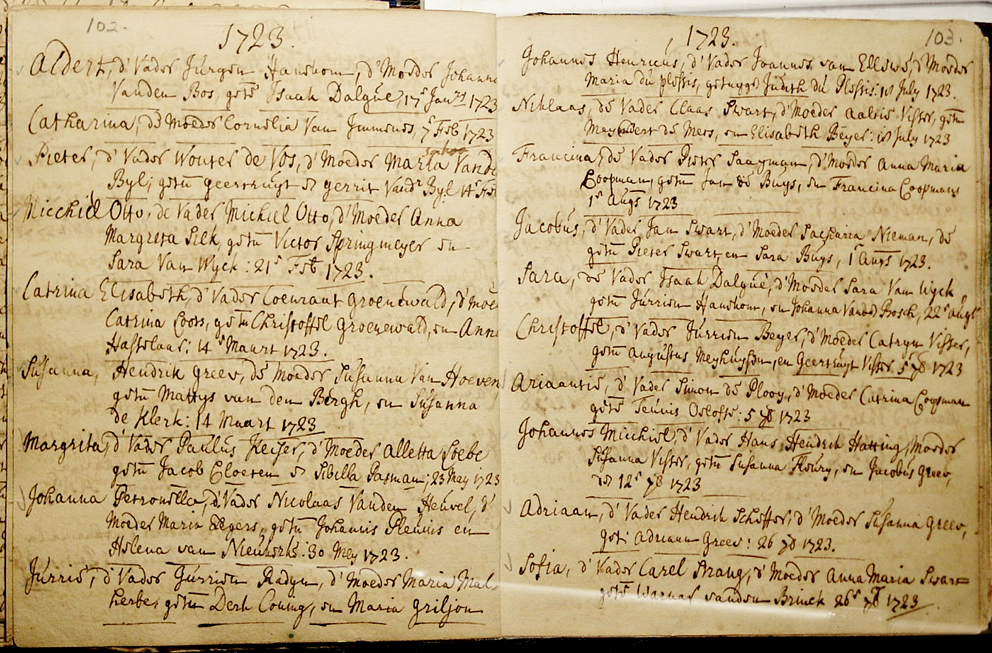 102.
1723.
Aldert, d' Vader Jurgen Hanekom, d' Moeder Johanna
Vanden Bos, getu Isaak Dalgue, 17 Janry 1723
Catharina, de Moeder Cornelia Van Immenes, 7 Feb 1723
Pieter, d' Vader Wouter de Vos, d' Moeder Maria Vande
Byl, getu geertruyt en gerrit Vandr Byl 14 Feb
Micchiel Otto, de Vader Michiel Otto, d' Moeder Anna
Margreta Silk, getu Victor Springmeyer en
Sara Van Wyck: 21 Feb 1723.
Catrina Elisabeth, d' Vader Coenraat Groenewald, d' moe
Catrina Coors, getu Christoffel Groenewald, en Anna
Hasselaar: 14 Maart 1723.
Susanna, Hendrik Greev, de Moeder Susanna Van Hoeven
getu Mattys van den Bergh, en Susanna
de Klerk: 14 Maart 1723
Margrita, d' Vater Paulus Keiser, d' Moeder Alletta Loebe
getu Jacob Cloeten en Sibilla Pasman, 23 May 1723
Johanna Petronella, d' Vader Nicolaas Vanden Heuvel, d'
Moeder Maria Elgers, getu Johannis Plenius en
Helena van Nienkerk: 30 Mey 1723.
Jurrie, d' Vader Jurrien Radyn, d' Moeder Maria Mal
herbe, getu Derk Couing, en Maria Griljon
1723.
103.
Johannes Henricus, d' Vader Joannes van Ellewe, d' Moeder
Maria du plessis, getuyge Judith du Plessis: July 1723.
Niklaas, de Vader Claas Swart, d' Moeder Aaltie Visser, getu
Meyndert de Mers, en Elisabeth Beyer: July 1723
Francina, de Vader Pieter Saayman, d' Moeder Anna Maria
Coopman, getu Jan de Buys, en Francina Coopmans
1 Augs 1723
Jacobus, d' Vader Jan Swart, d' Moeder Sacharia Nieman, de
getu Pieter Swart en Sara Buys, 1 Augs 1723.
Sara, de Vader Isaak Dalgue, d' Moeder Sara Van Wyck
getu Jurrien Hanekom, en Johanna Vande Bosch, 22 augs
Christoffel, d' Vader Jurrien Beyer, d' Moeder Catryn Visser,
getu Augustus Meyhuysen, en Geertruyt Visser 5 7b 1723
Ariaantie, d' Vader Simon de Plooy, d' Moeder Catrina Coopman
getu Teunis Oelofse: 5 7b 1723
Johannes Micchiel, d' Vader Hans Hendrik Hatting, Moeder
Susanna Visser, getu Susanna Fleury, en Jacobus Greev,
den 12 7b 1723
Adriaan, d' Vader Hendrik Scheffer, d' Moeder Susanna Greev,
get: Adriaan Greev: 26 7b 1723.
Sofia, d' Vader Carel Prang, d' Moeder Anna Maria Swar=
getu Warnar vanden Brinck 26 7b 1723